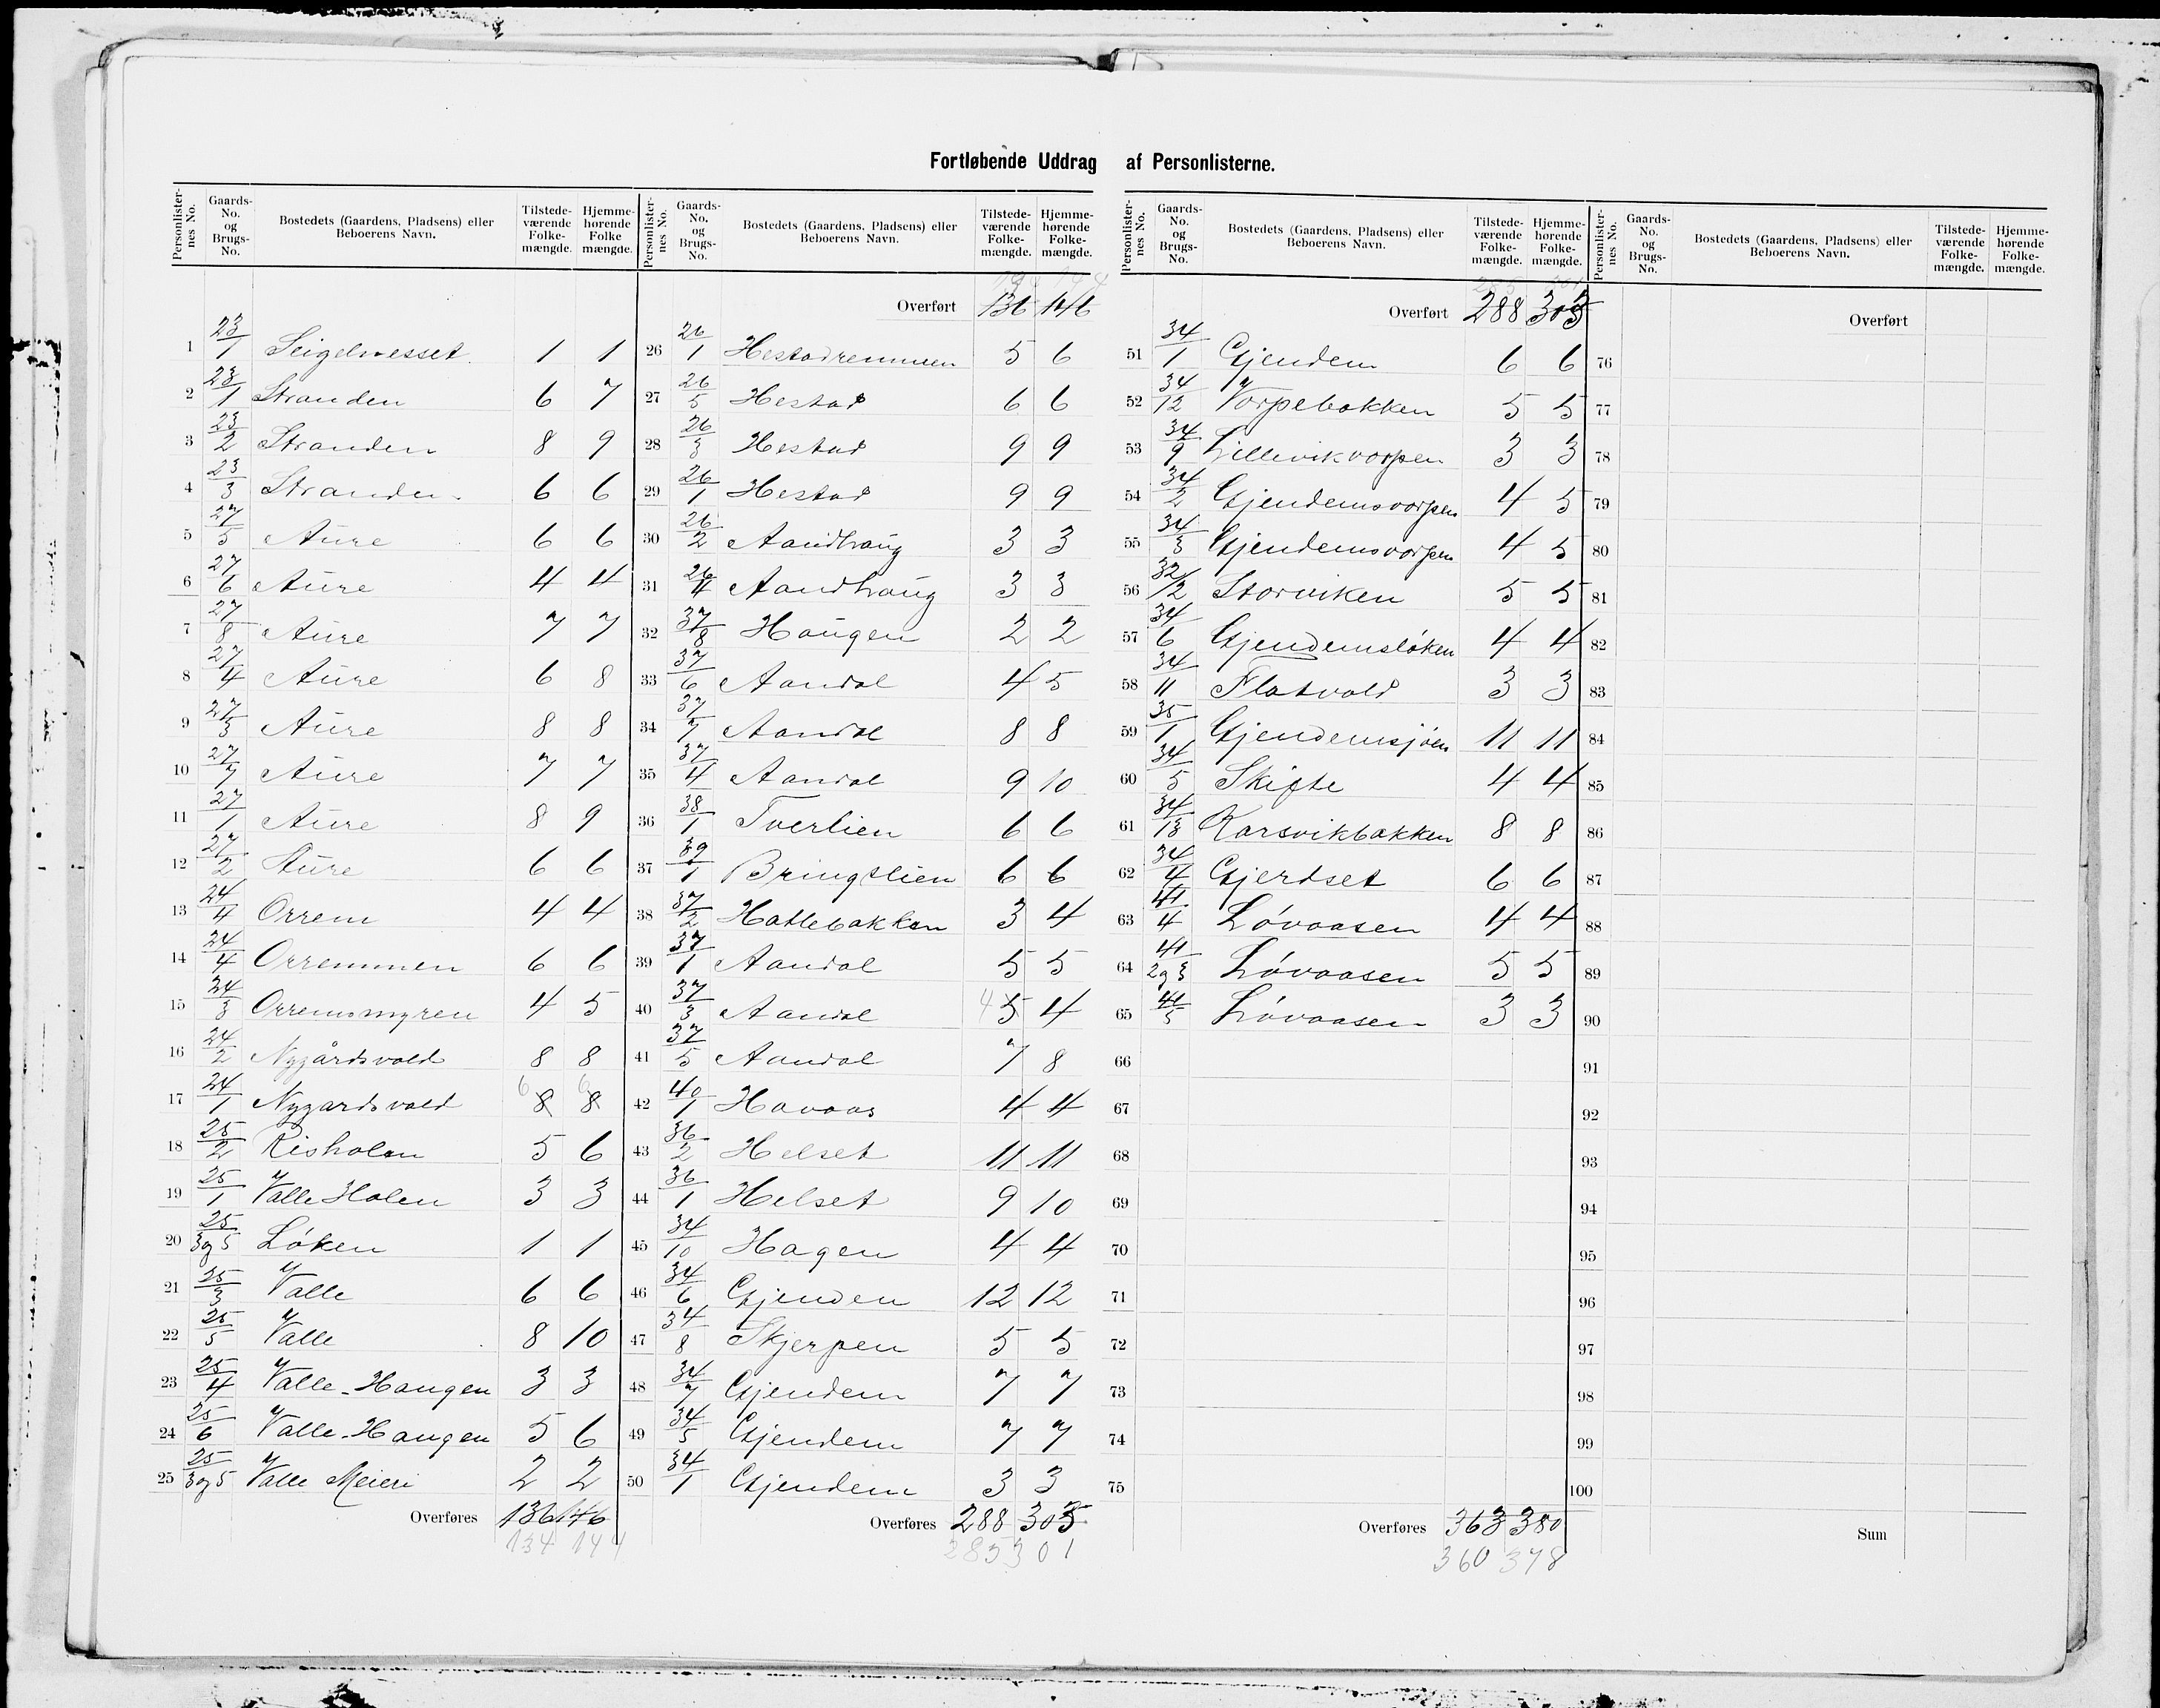 Fortløbende Uddrag af Personlisterne.
Personlisternes No. | Gaards-No. og Brugs-No. | Bostedets (Gaardens, Pladsens) eller Beboerens Navn. | Tilstedeværende Folkemængde. | Hjemmehørende Folke mængde.
1 23/1 Seigelnesset 1 1
2 23/1 Stranden 6 7
3 23/2 Stranden 8 9
4 23/3 Stranden 6 6
5 27/5 Aure 6 6
6 27/6 Aure 4 4
7 27/8 Aure 7 7
8 27/4 Aure 6 8
9 27/3 Aure 8 8
10 27/7 Aure 7 7
11 27/1 Aure 8 9
12 27/2 Aure 6 6
13 24/4 Orrem 4 4
14 24/4 Orremmen 6 6
15 24/3 Orremsmyren 4 5
16 24/2 Nygårdsvold 8 8
17 24/1 Nygardsvold 6 8 6 8
18 25/2 Risholen 5 6
19 25/1 Valle Holen 3 3
20 25/3og5 Løken 1 1
21 25/3 Valle 6 6
22 25/5 Valle 8 10
23 25/4 Valle-Haugen 3 3
24 25/6 Valle-Haugen 5 6
25 25/3og5 Valle Meieri 2 2
Overføres 136 146
134 144
Personlisternes No. | Gaards-No. og Brugs-No. | Bostedets (Gaardens, Pladsens) eller Beboerens Navn. | Tilstedeværende Folkemængde. | Hjemmehørende Folkemængde.
Overført 136 146
26 26/1 Hestadremmen 5 6
27 26/5 Hestad 6 6
28 26/3 Hestad 9 9
29 26/1 Hestad 9 9
30 26/2 Aandhaug 3 3
31 26/4 Aandhaug 3 3
32 37/8 Haugen 2 2
33 37/6 Aandal 4 5
34 37/7 Aandal 8 8
35 37/4 Aandal 9 10
36 38/1 Tverlien 6 6
37 39/1 Bringslien 6 6
38 37/2 Hatlebakken 3 4
39 37/1 Aandal 5 5
40 37/3 Aandal 4 5 4
41 37/5 Aandal 7 8
42 40/1 Havaas 4 4
43 36/2 Helset 11 11
44 36/1 Helset 9 10
45 34/10 Hagen 4 4
46 34/6 Gjendem 12 12
47 34/8 Skjerpen 5 5
48 34/7 Gjendem 7 7
49 34/5 Gjendem 7 7
50 34/1 Gjendem 3 3
Overføres 288 303
285 301
Personlisternes No. | Gaards-No. og Brugs-No. | Bostedets (Gaardens, Pladsens) eller Beboerens Navn. | Tilstedeværende Folkemængde. | Hjemmehørende Folkemængde.
285 301
Overført 288 303
51 34/1 Gjendem 6 6
52 34/12 Vorpebakken 5 5
53 34/9 Lillevikvorpen 3 3
54 34/2 Gjendemsvorpen 4 5
55 34/3 Gjendemsvorpen 4 5
56 32/2 Storviken 5 5
57 34/6 Gjendemsløken 4 4
58 34/11 Flatvold 3 3
59 35/1 Gjendemsjøen 11 11
60 34/5 Skifte 4 4
61 34/13 Karsvikbakken 8 8
62 34/4 Gjerdset 6 6
63 41/4 Løvaasen 4 4
64 41/2og3 Løvaasen 5 5
65 41/5 Løvaasen 3 3
66
67
68
69
70
71
72
73
74
75
Overføres 363 380
360 378
Personlisternes No. | Gaards-No. og Brugs-No. | Bostedets (Gaardens, Pladsens) eller Beboerens Navn. | Tilstedeværende Folkemængde. | Hjemmehørende Folkemængde.
Overført
76
77
78
79
80
81
82
83
84
85
86
87
88
89
90
91
92
93
94
95
96
97
98
99
100
Sum